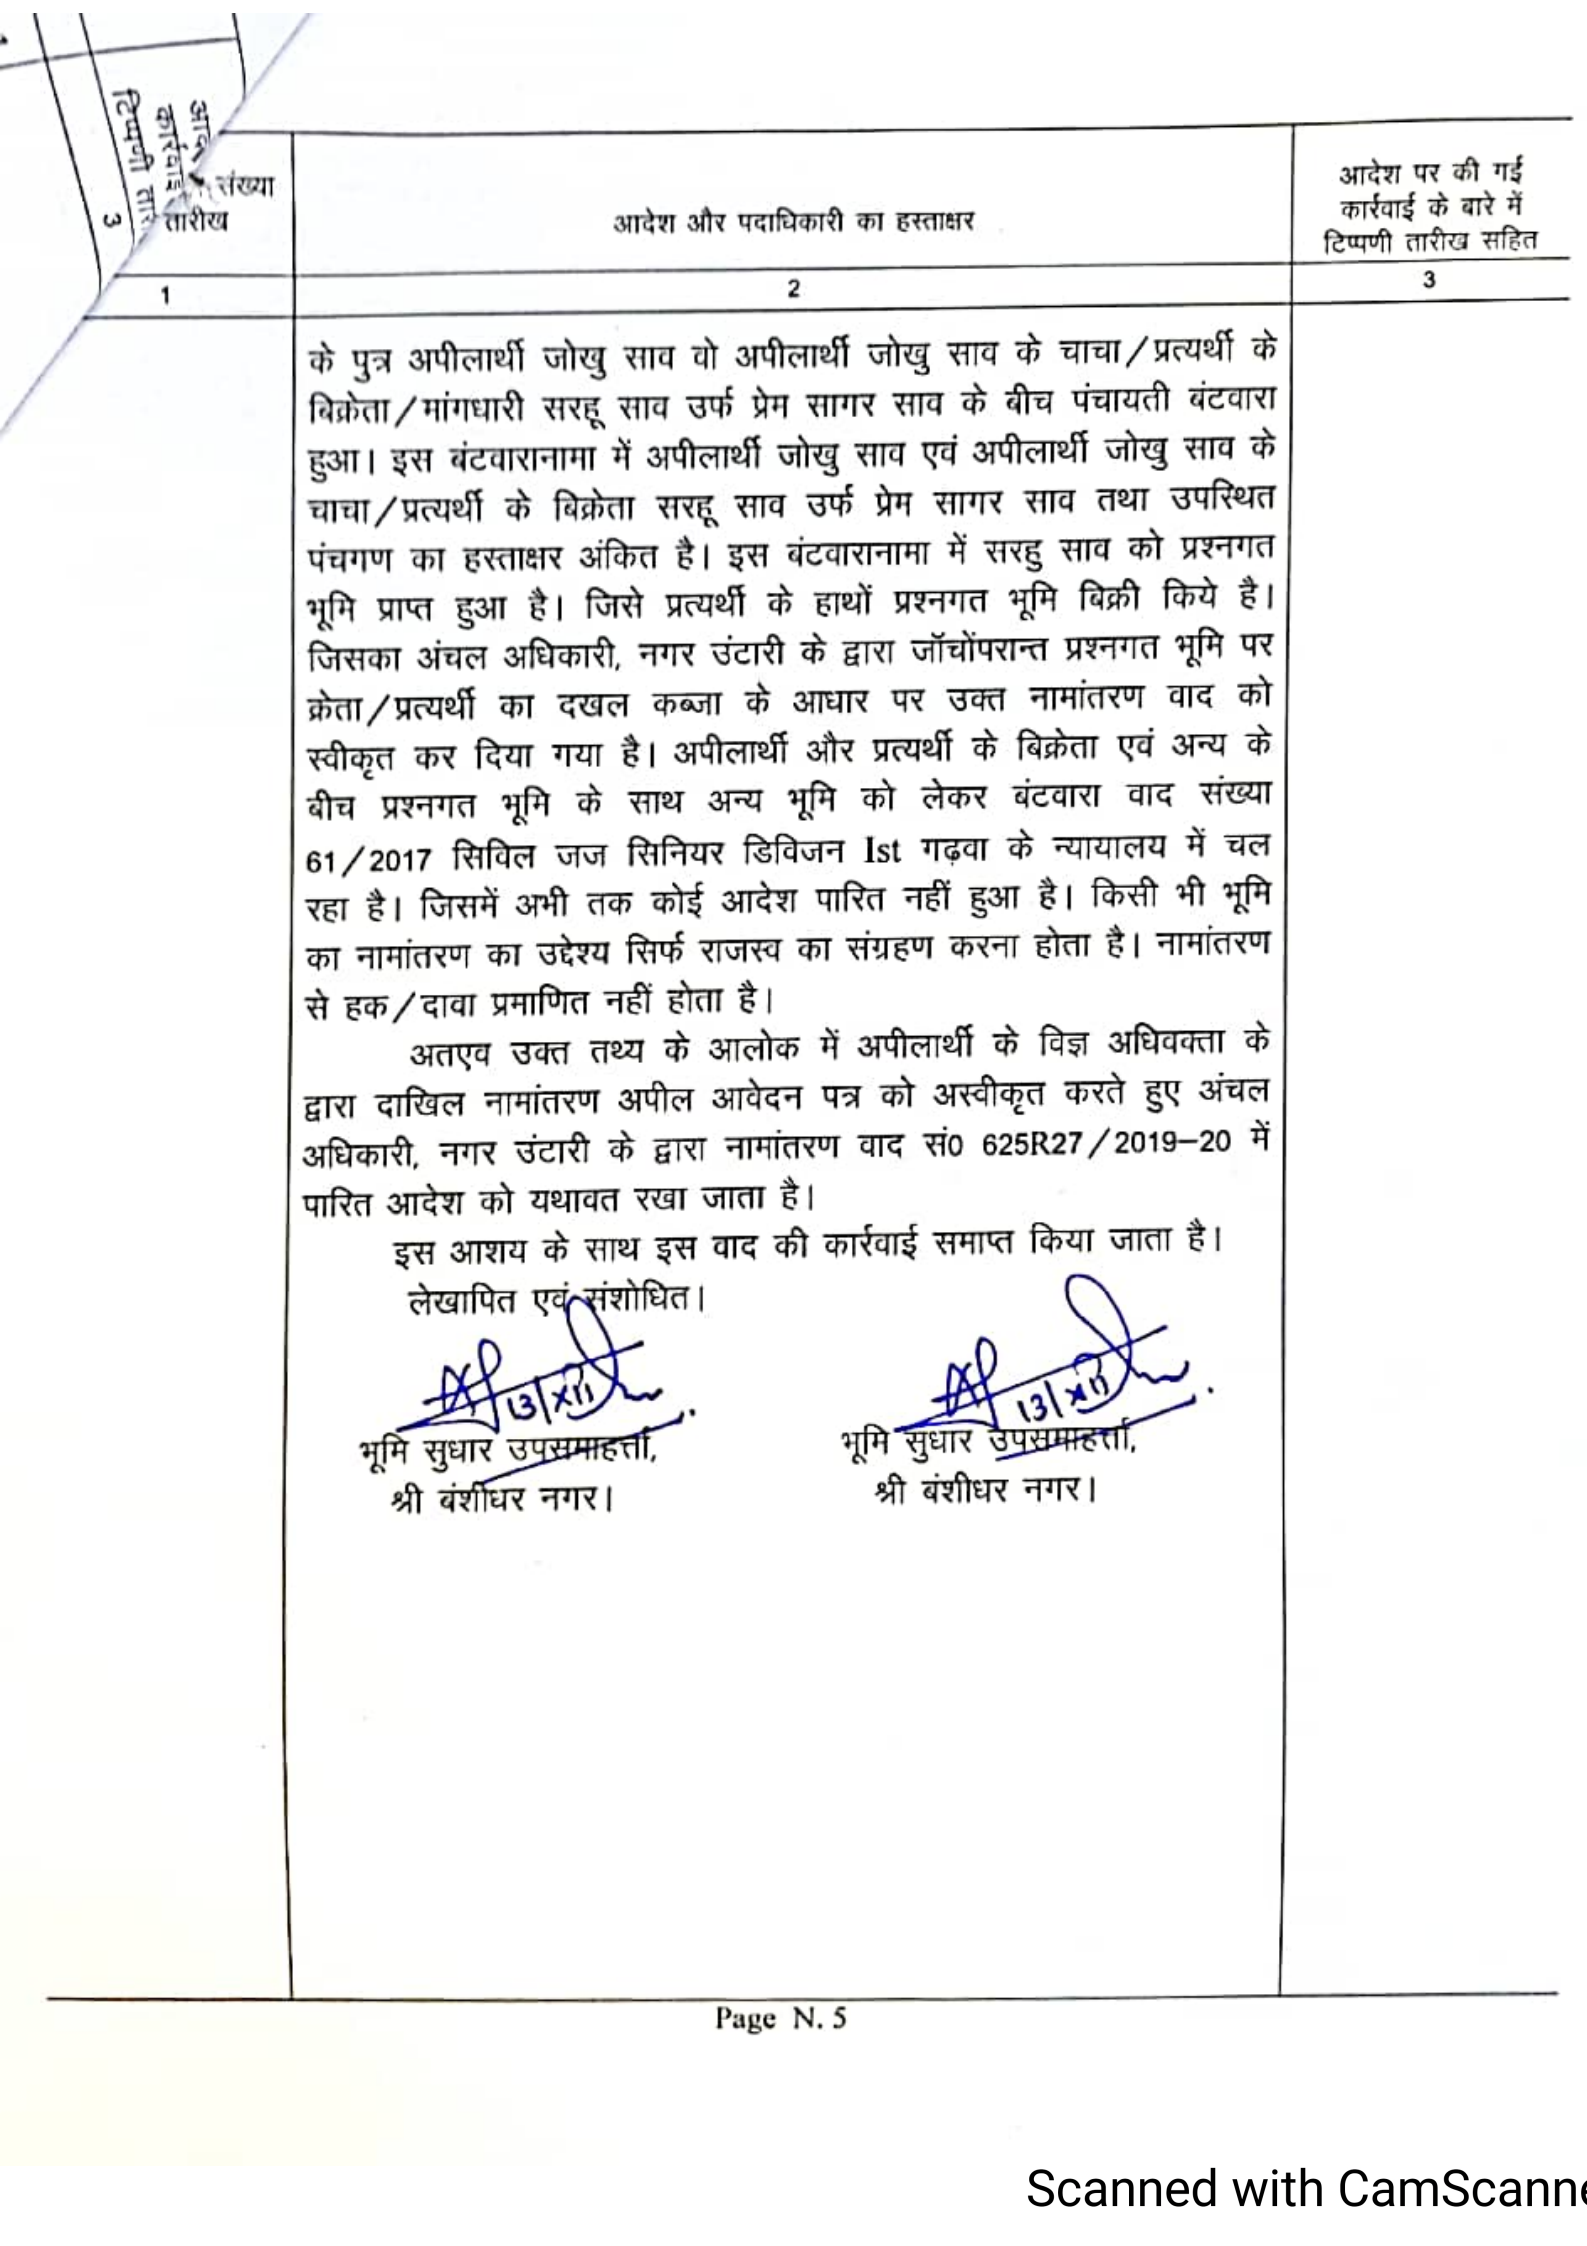 आदेश
कार्रवाई
टिप्पणी तारी
3
संख्या
तारीख
आदेश और पदाधिकारी का हस्ताक्षर
आदेश पर की गई
कार्रवाई के बारे में
टिप्पणी तारीख सहित
1
2
3
के पुत्र अपीलार्थी जोखु साव वो अपीलार्थी जोखु साव के चाचा/प्रत्यर्थी के
बिक्रेता/मांगधारी सरहू साव उर्फ प्रेम सागर साव के बीच पंचायती बंटवारा
हुआ। इस बंटवारानामा में अपीलार्थी जोखु साव एवं अपीलार्थी जोखु साव के
चाचा/प्रत्यर्थी के बिक्रेता सरहू साव उर्फ प्रेम सागर साव तथा उपस्थित
पंचगण का हस्ताक्षर अंकित है। इस बंटवारानामा में सरहु साव को प्रश्नगत
भूमि प्राप्त हुआ है। जिसे प्रत्यर्थी के हाथों प्रश्नगत भूमि बिक्री किये है।
जिसका अंचल अधिकारी, नगर उंटारी के द्वारा जॉचोंपरान्त प्रश्नगत भूमि पर
क्रेता/प्रत्यर्थी का दखल कब्जा के आधार पर उक्त नामांतरण वाद को
स्वीकृत कर दिया गया है। अपीलार्थी और प्रत्यर्थी के बिक्रेता एवं अन्य के
बीच प्रश्नगत भूमि के साथ अन्य भूमि को लेकर बंटवारा वाद संख्या
61/2017 सिविल जज सिनियर डिविजन Ist गढ़वा के न्यायालय में चल
रहा है। जिसमें अभी तक कोई आदेश पारित नहीं हुआ है। किसी भी भूमि
का नामांतरण का उद्देश्य सिर्फ राजस्व का संग्रहण करना होता है। नामांतरण
से हक/दावा प्रमाणित नहीं होता है।
अतएव उक्त तथ्य के आलोक में अपीलार्थी के विज्ञ अधिवक्ता के
द्वारा दाखिल नामांतरण अपील आवेदन पत्र को अस्वीकृत करते हुए अंचल
अधिकारी, नगर उंटारी के द्वारा नामांतरण वाद सं0 625R27/2019–20 में
पारित आदेश को यथावत रखा जाता है।
इस आशय के साथ इस वाद की कार्रवाई समाप्त किया जाता है।
लेखापित एवं संशोधित।
13/XII
13/XII
भूमि सुधार उपसमाहर्त्ता,
भूमि सुधार उपसमाहर्त्ता,
श्री बंशीधर नगर।
श्री बंशीधर नगर।
Page N. 5
Scanned with CamScanne